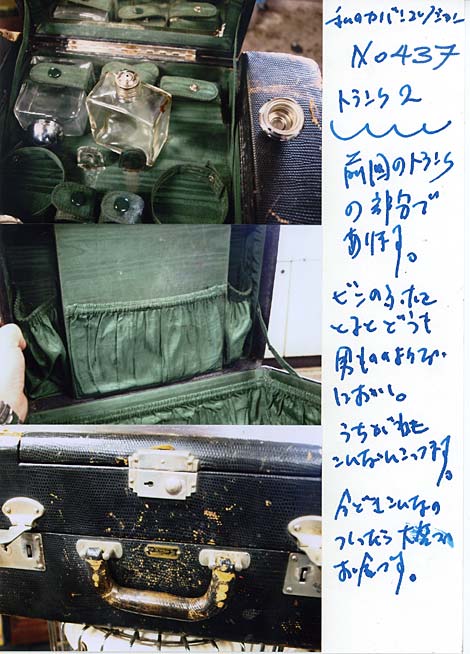 私のカバンコレクション
No437
トランク2
前回のトランク
の部分で
あります。
ビンの
とるとどうも
男もののような
におい。
うちがわも
こんなにこってます。
今どきこんなの
つくったら大変な
お金です。